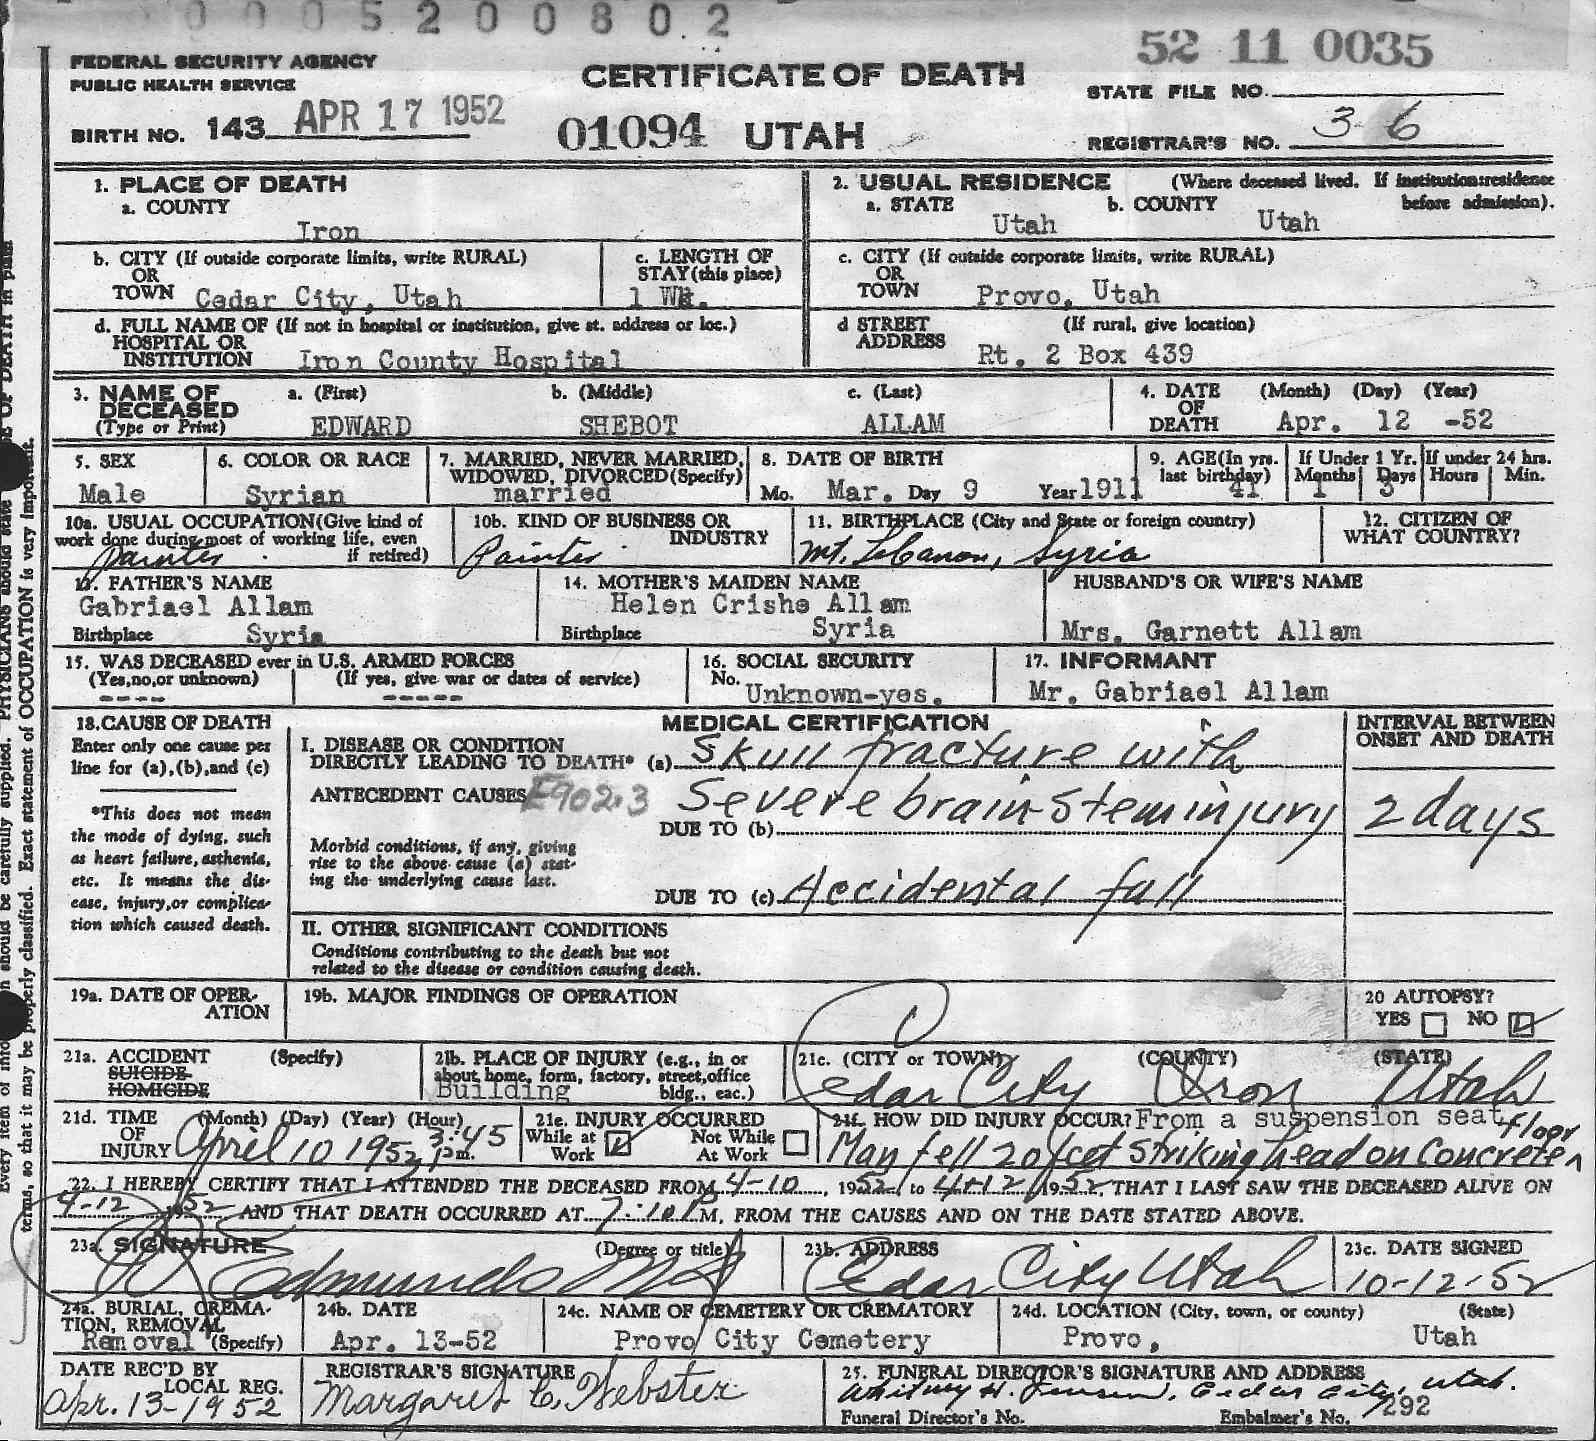 0005200802
52 11 0035
FEDERAL SECURITY AGENCY
PUBLIC HEALTH SERVICE
CERTIFICATE OF DEATH
STATE FILE NO.
BIRTH NO. 143 APR 17 1952
01094 UTAH
REGISTRAR'S NO. 36
1. PLACE OF DEATH
a. COUNTY
Iron
2. USUAL RESIDENCE (Where deceased lived. If institution:residence before admission).
a. STATE Utah b. COUNTY Utah
b. CITY (If outside corporate limits, write RURAL)
OR
TOWN Cedar City, Utah
c. LENGTH OF
STAY(this place)
1 Wk.
c. CITY (If outside corporate limits, write RURAL)
OR
TOWN Provo, Utah
d. FULL NAME OF (If not in hospital or institution, give st. address or loc.)
HOSPITAL OR
INSTITUTION Iron County Hospital
d STREET (If rural, give location)
ADDRESS Rt. 2 Box 439
3. NAME OF
DECEASED
(Type or Print)
a. (First) b. (Middle) c. (Last)
EDWARD SHEBOT ALLAM
4. DATE (Month) (Day) (Year)
OF
DEATH Apr. 12 -52
5. SEX
Male
6. COLOR OR RACE
Syrian
7. MARRIED, NEVER MARRIED,
WIDOWED, DIVORCED(Specify)
married
8. DATE OF BIRTH
Mo. Mar. Day 9 Year 1911
9. AGE(In yrs.
last birthday)
41
If Under 1 Yr.
Months Days
1 3
If under 24 hrs.
Hours Min.
10a. USUAL OCCUPATION(Give kind of
work done during most of working life, even
if retired)
Painter
10b. KIND OF BUSINESS OR
INDUSTRY
Painter
11. BIRTHPLACE (City and State or foreign country)
Mt. Lebanon, Syria
12. CITIZEN OF
WHAT COUNTRY?
13. FATHER'S NAME
Gabriael Allam
Birthplace Syria
14. MOTHER'S MAIDEN NAME
Helen Crishe Allam
Birthplace Syria
HUSBAND'S OR WIFE'S NAME
Mrs. Garnett Allam
15. WAS DECEASED ever in U.S. ARMED FORCES
(Yes,no,or unknown) (If yes, give war or dates of service)
---- -----
16. SOCIAL SECURITY
No.
Unknown-yes.
17. INFORMANT
Mr. Gabriael Allam
18. CAUSE OF DEATH
Enter only one cause per
line for (a),(b),and (c)
*This does not mean
the mode of dying, such
as heart failure, asthenia,
etc. It means the dis-
ease, injury,or complica-
tion which caused death.
MEDICAL CERTIFICATION
I. DISEASE OR CONDITION
DIRECTLY LEADING TO DEATH* (a) Skull fracture with
ANTECEDENT CAUSES E902.3
Severe brain-stem injury
DUE TO (b)
Morbid conditions, if any, giving
rise to the above cause (a) stat-
ing the underlying cause last.
DUE TO (c) Accidental fall
II. OTHER SIGNIFICANT CONDITIONS
Conditions contributing to the death but not
related to the disease or condition causing death.
INTERVAL BETWEEN
ONSET AND DEATH
2 days
19a. DATE OF OPER-
ATION
19b. MAJOR FINDINGS OF OPERATION
20 AUTOPSY?
YES NO
21a. ACCIDENT (Specify)
SUICIDE
HOMICIDE
21b. PLACE OF INJURY (e.g., in or
about home, form, factory, street,office
bldg., eac.)
Building
21c. (CITY or TOWN) (COUNTY) (STATE)
Cedar City Iron Utah
21d. TIME (Month) (Day) (Year) (Hour)
OF
INJURY April 10 1952 3:45 pm.
21e. INJURY OCCURRED
While at
Work
Not While
At Work
21f. HOW DID INJURY OCCUR? From a suspension seat
Man fell 20 feet striking head on concrete floor
22. I HEREBY CERTIFY THAT I ATTENDED THE DECEASED FROM 4-10, 1952, to 4-12, 1952, THAT I LAST SAW THE DECEASED ALIVE ON
4-12 1952 AND THAT DEATH OCCURRED AT 7:10 P M, FROM THE CAUSES AND ON THE DATE STATED ABOVE.
23a. SIGNATURE (Degree or title)
Edmunds MD
23b. ADDRESS
Cedar City Utah
23c. DATE SIGNED
10-12-52
24a. BURIAL, CREMA-
TION, REMOVAL
Removal (Specify)
24b. DATE
Apr. 13-52
24c. NAME OF CEMETERY OR CREMATORY
Provo City Cemetery
24d. LOCATION (City, town, or county) (State)
Provo, Utah
DATE REC'D BY
LOCAL REG.
Apr. 13-1952
REGISTRAR'S SIGNATURE
Margaret C. Webster
25. FUNERAL DIRECTOR'S SIGNATURE AND ADDRESS
Whitney H. Jensen, Cedar City, Utah.
Funeral Director's No. Embalmer's No. 292
terms, so that it may be properly classified. Exact statement of OCCUPATION is very important.